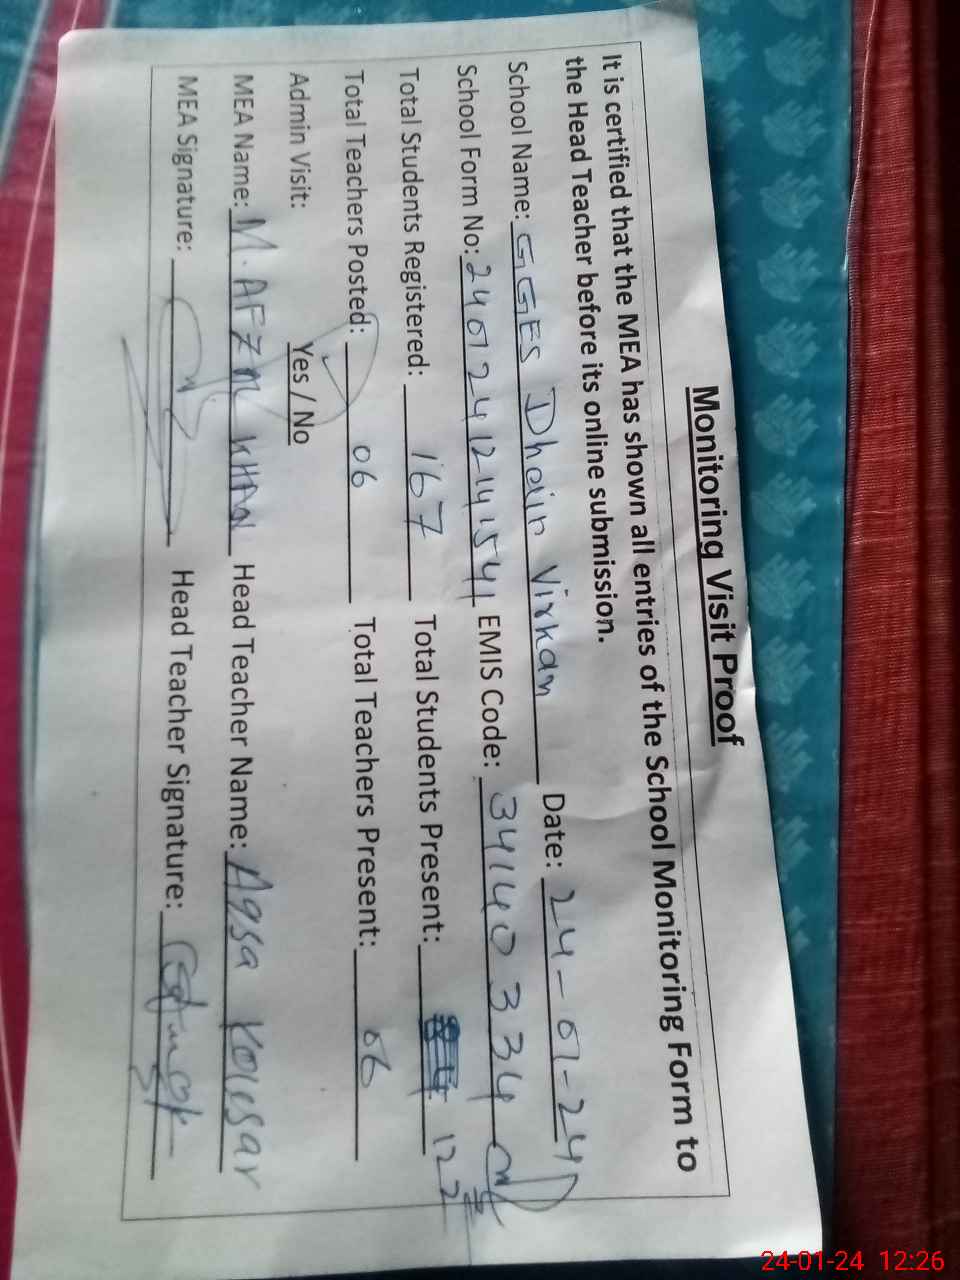 Monitoring Visit Proof
It is certified that the MEA has shown all entries of the School Monitoring Form to
the Head Teacher before its online submission.
School Name: GGES Dhain Virkan Date: 24-01-24
School Form No: EMIS Code: 34140334
Total Students Registered: 167 Total Students Present: 122
Total Teachers Posted: 06 Total Teachers Present: 06
Admin Visit: Yes / No
MEA Name: M. AFZAL KHAN Head Teacher Name: Aqsa Kousar
MEA Signature: Head Teacher Signature:
24-01-24 12:26